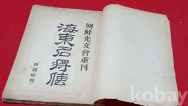 朝鮮光文會重刊
海東名將傳
kobay